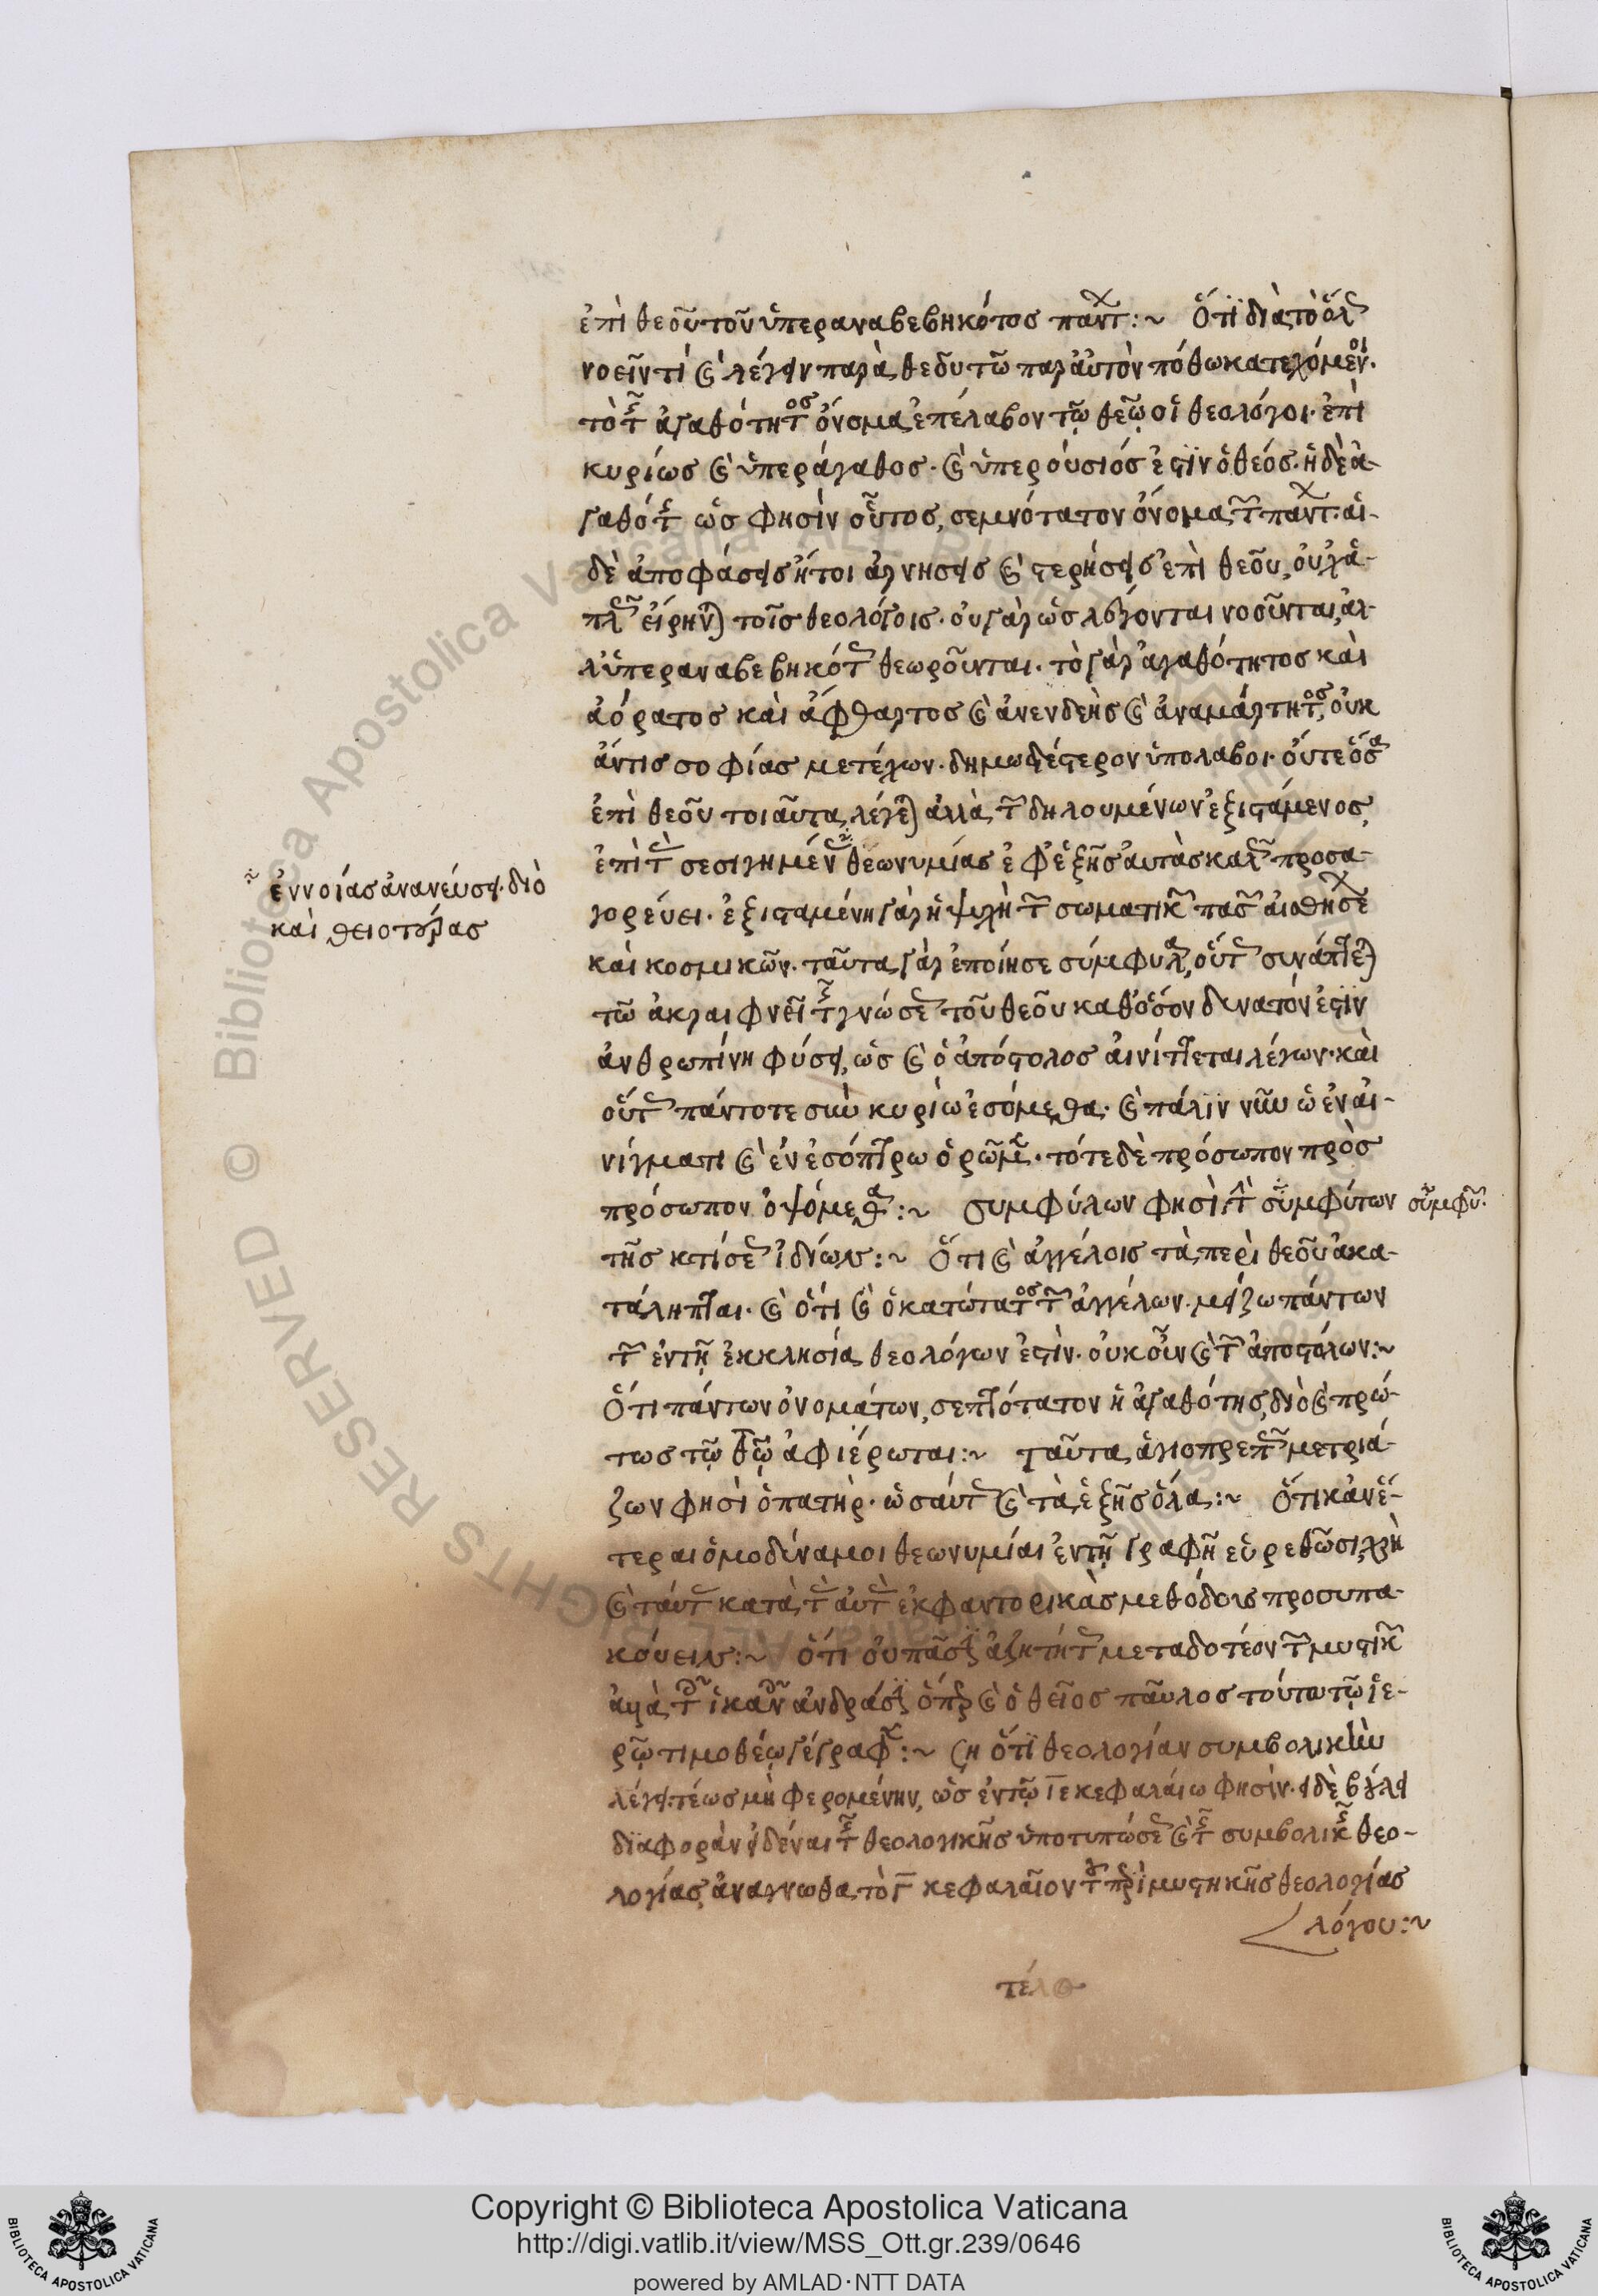 ἐπὶ θεοῦ τοῦ ὑπεραναβεβηκότος παντ :~ Ὅτι διὰ τὸ ὅλ
νοεῖν τί καὶ λέγειν παρὰ θεοῦ τῶ παρ αὐτὸν πόθω κατεχόμενοι.
τὸ τῆς ἀγαθότητος ὄνομα ἐπέλαβον τῷ θεῷ οἱ θεολόγοι. ἐπὶ
κυρίως καὶ ὑπεράγαθος. καὶ ὑπερούσιός ἐστιν ὁ θεός. ἡ δὲ ἀ-
γαθότης ὥς φησὶν οὗτος, σεμνότατον ὄνομα τῶν παντ. αἱ
δὲ ἀποφάσεις ἤτοι ἀρνήσεις καὶ στερήσεις ἐπὶ θεοῦ, οὐχ ἁ-
πλῶς εἴρηνται τοῖς θεολόγοις. οὐ γὰρ ὡς λέγονται νοοῦνται, ἀλ-
λ' ὑπεραναβεβηκότως θεωροῦνται. τὸ γὰρ ἀγαθότητος καὶ
ἀόρατος καὶ ἄφθαρτος καὶ ἀνενδεὴς καὶ ἀναμάρτητος, οὐκ
ἄν τις σοφίας μετέχων. δημωδέστερον ὑπολάβοι. οὔτε ὅσα
ἐπὶ θεοῦ τοιαῦτα λέγεται ἀλλὰ τῶν δηλουμένων ἐξιστάμενος,
ἐπὶ τὰς σεσιγημένας θεωνυμίας ἐφεξῆς αὐτὰς καλῶς προσα-
γορεύει. ἐξισταμένη γὰρ ἡ ψυχὴ τῶν σωματικῶν πασῶν αἰσθήσεων
ἐννοίας ἀνανεύσει. διὸ
καὶ θειοτέρας
καὶ κοσμικῶν. ταῦτα γὰρ ἐποίησε σύμφυλα, οὕτως συνάπτεται
τῶ ἀκραιφνεῖ τῆς γνώσεως τοῦ θεοῦ καθ' ὅσον δυνατόν ἐστιν
ἀνθρωπίνη φύσει, ὡς καὶ ὁ ἀπόστολος αἰνίττεται λέγων. καὶ
οὕτως πάντοτε σὺν κυρίω ἐσόμεθα. καὶ πάλιν νῦν ὡ ἐν αἰ-
νίγματι καὶ ἐν ἐσόπτρω ὁρῶμεν. τότε δὲ πρόσωπον πρὸς
πρόσωπον ὀψόμεθα :~ συμφύλων φησὶ τῶν συμφύτων συμφυ.
τῆς κτίσεως ἰδίων :~ Ὅτι καὶ ἀγγέλοις τὰ περὶ θεοῦ ἀκα-
τάληπται. καὶ ὅτι καὶ ὁ κατώτατος τῶν ἀγγέλων. μείζω πάντων
τῶν ἐν τῇ ἐκκλησία θεολόγων ἐστίν. οὐκοῦν καὶ τῶν ἀποστόλων :~
Ὅτι πάντων ὀνομάτων, σεπτότατον ἡ ἀγαθότης, διὸ καὶ πρώ-
τως τῷ θῷ ἀφιέρωται :~ ταῦτα ἁγιοπρεπῶς μετριά-
ζων φησὶ ὁ πατήρ. ὡσαύτως καὶ τὰ ἑξῆς ὅλα :~ Ὅτι κἀν ἕ-
τεραι ὁμοδύναμοι θεωνυμίαι ἐν τῇ γραφῇ εὑρεθῶσι, χρὴ
καὶ ταύτας κατὰ τὰς αὐτὰς ἐκφαντορικὰς μεθόδους προσυπα-
κούειν :~ ὅτι οὐ πᾶσι ἀζητήτως μεταδοτέον τῶν μυστικῶν
ἀλλὰ τοῖς ἱκανοῖς ἀνδράσι ὅπερ καὶ ὁ θεῖος παῦλος τοῦτο τῷ ἱε-
ρῷ τιμοθέῳ γέγραφε :~ ὅτι θεολογίαν συμβολικὴν
λέγει. τέως μὴ φερομένην, ὡς ἐν τῷ ιε κεφαλαίω φησίν. εἰ δὲ βούλει
διαφορὰν εἰδέναι τῆς θεολογικῆς ὑποτυπώσεως καὶ τῆς συμβολικῆς θεο-
λογίας, ἀνάγνωθι τὸ γ κεφαλαῖον τοῦ περὶ μυστηκῆς θεολογίας
λόγου :~
τέλος
Copyright © Biblioteca Apostolica Vaticana
http://digi.vatlib.it/view/MSS_Ott.gr.239/0646
powered by AMLAD·NTT DATA
BIBLIOTECA APOSTOLICA VATICANA
BIBLIOTECA APOSTOLICA VATICANA